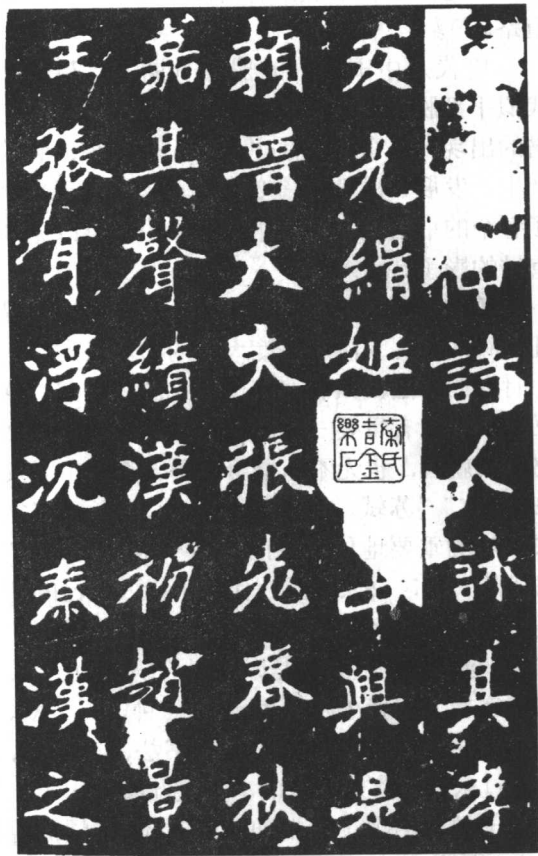 仲詩人詠其孝
友光緝姬中興是
賴晉大夫張老春秋
嘉其聲績漢初趙景
王張耳浮沉秦漢之
秦氏
吉金
樂石